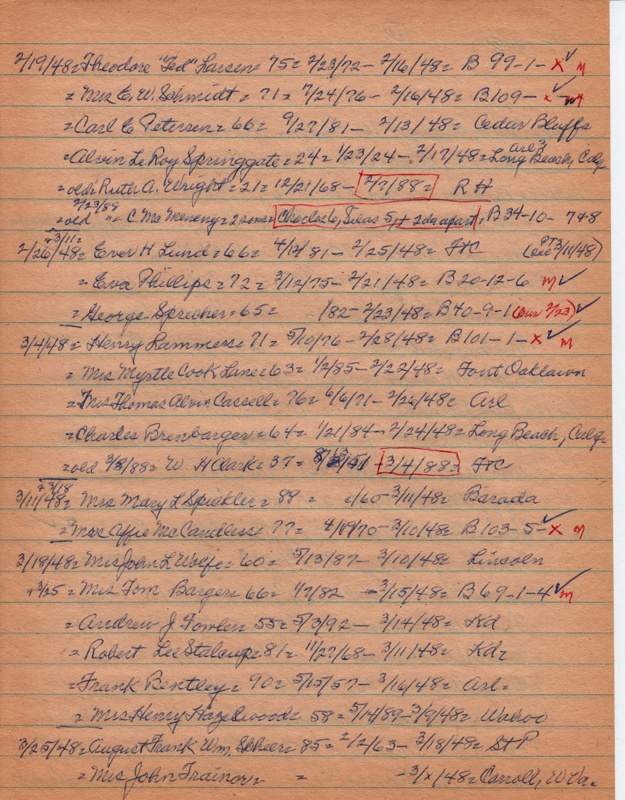 2/19/48 = Theodore "Ted" Larsen = 75 = 2/23/72 - 2/16/48 = B 99-1- x ✓ M
= Mrs E. W. Schmidt = 71 = 7/24/76 - 2/16/48 = B109- x ✓
= Carl C Petersen = 66 = 9/27/81 - 2/13/48 = Cedar Bluffs
= Alvin Le Roy Springgate = 24 = 1/23/24 - 2/17/48 = Long Beach, Calif
= old = Ruth A. Wright = 21 = 12/21/68 - 2/7/88 = R H
2/23/89
= old " = C Mc Meneny = 2 sons = Charles 6, Silas 5, + 2 da apart, B 34-10- 7+8
+ 3/11 =
2/26/48 = Ever H Lund = 66 = 4/12/81 - 2/25/48 = FtC 3/11/48)
= Eva Phillips = 72 = 3/12/75 - 2/21/48 = B 20-12-6 M ✓
= George Sprecher = 65 = /82 - 2/23/48 = B 40-9-1 (Bur 2/23) ✓
3/4/48 = Henry Lammers = 71 = 5/10/76 - 2/28/48 = B101-1- x ✓ M
= Mrs Myrtle Cook Lane = 63 = 1/2/85 - 2/22/48 = Fort Oaklawn
= Mrs Thomas Alvin Cassell = 76 = 6/6/71 - 2/26/48 = Arl
= Charles Brenbarger = 64 = 1/21/84 - 2/24/48 = Long Beach, Calif.
= old 3/8/88 = W H Clark = 37 = - 3/4/88 = FtC
+ 3/18
3/11/48 = Mrs Mary L Spickler = 88 = /60 - 3/11/48 = Barada
= Mrs Affie McCandless = 77 = 4/19/70 - 3/10/48 = B 103-5- ✓ x M
3/18/48 = Mrs John L Wolfe = 60 = 5/13/87 - 3/10/48 = Lincoln
+ 3/25 = Mrs Tom Barger = 66 = 1/7/82 - 3/15/48 = B 69-1-4 ✓ M
= Andrew J Fowler = 55 = 5/3/92 - 3/14/48 = Kd
= Robert Lee Stalcup = 81 = 11/27/68 - 3/11/48 = Kd =
= Frank Bentley = 90 = 5/15/57 - 3/16/48 = Arl =
= Mrs Henry Hazelwood = 58 = 5/14/89 - 3/9/48 = Wahoo
3/25/48 = August Frank Wm. Scheer = 85 = 2/2/63 - 3/18/48 = St P
= Mrs John Trainor = = - 3/x/48 = Carroll, W Va.